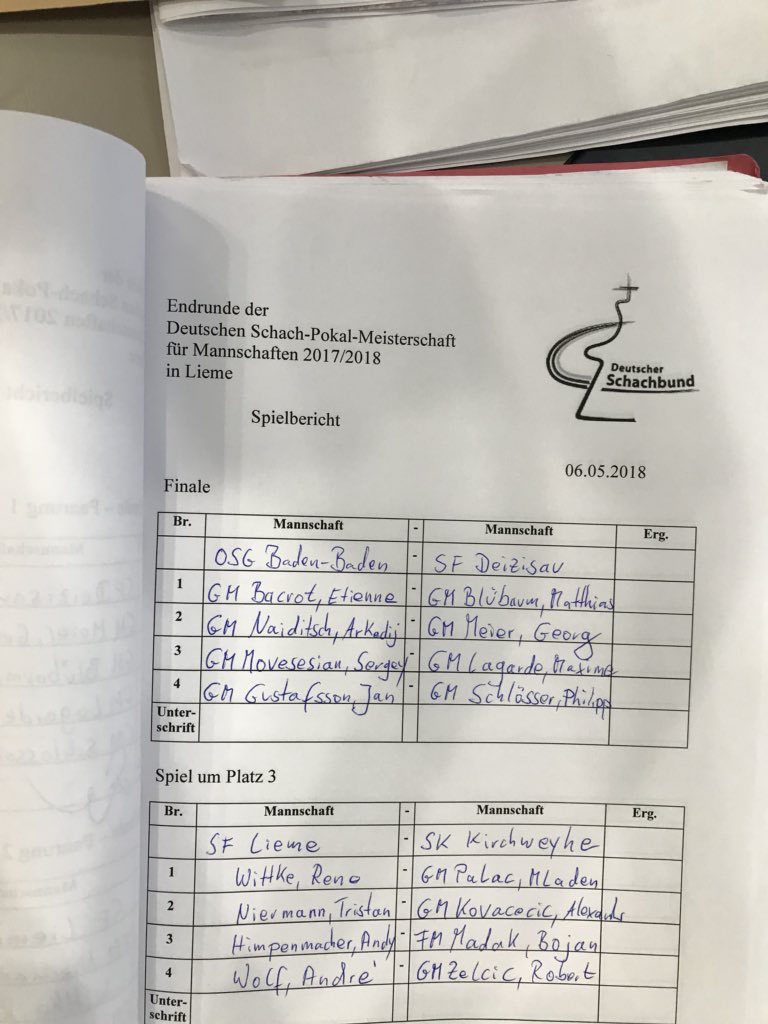 Endrunde der
Deutschen Schach-Pokal-Meisterschaft
für Mannschaften 2017/2018
in Lieme
Deutscher
Schachbund
Spielbericht
06.05.2018
Finale
Br. Mannschaft - Mannschaft Erg.
OSG Baden-Baden - SF Deizisau
1 GM Bacrot, Etienne - GM Blübaum, Matthias
2 GM Naiditsch, Arkadij - GM Meier, Georg
3 GM Movsesian, Sergey - GM Lagarde, Maxime
4 GM Gustafsson, Jan - GM Schlässer, Philipp
Unter-
schrift
Spiel um Platz 3
Br. Mannschaft - Mannschaft Erg.
SF Lieme - SK Kirchweyhe
1 Wittke, Reno - GM Palac, Mladen
2 Niermann, Tristan - GM Kovacecic, Alexandr
3 Himpenmacher, Andy - FM Madak, Bojan
4 Wolf, André - GM Zelcic, Robert
Unter-
schrift